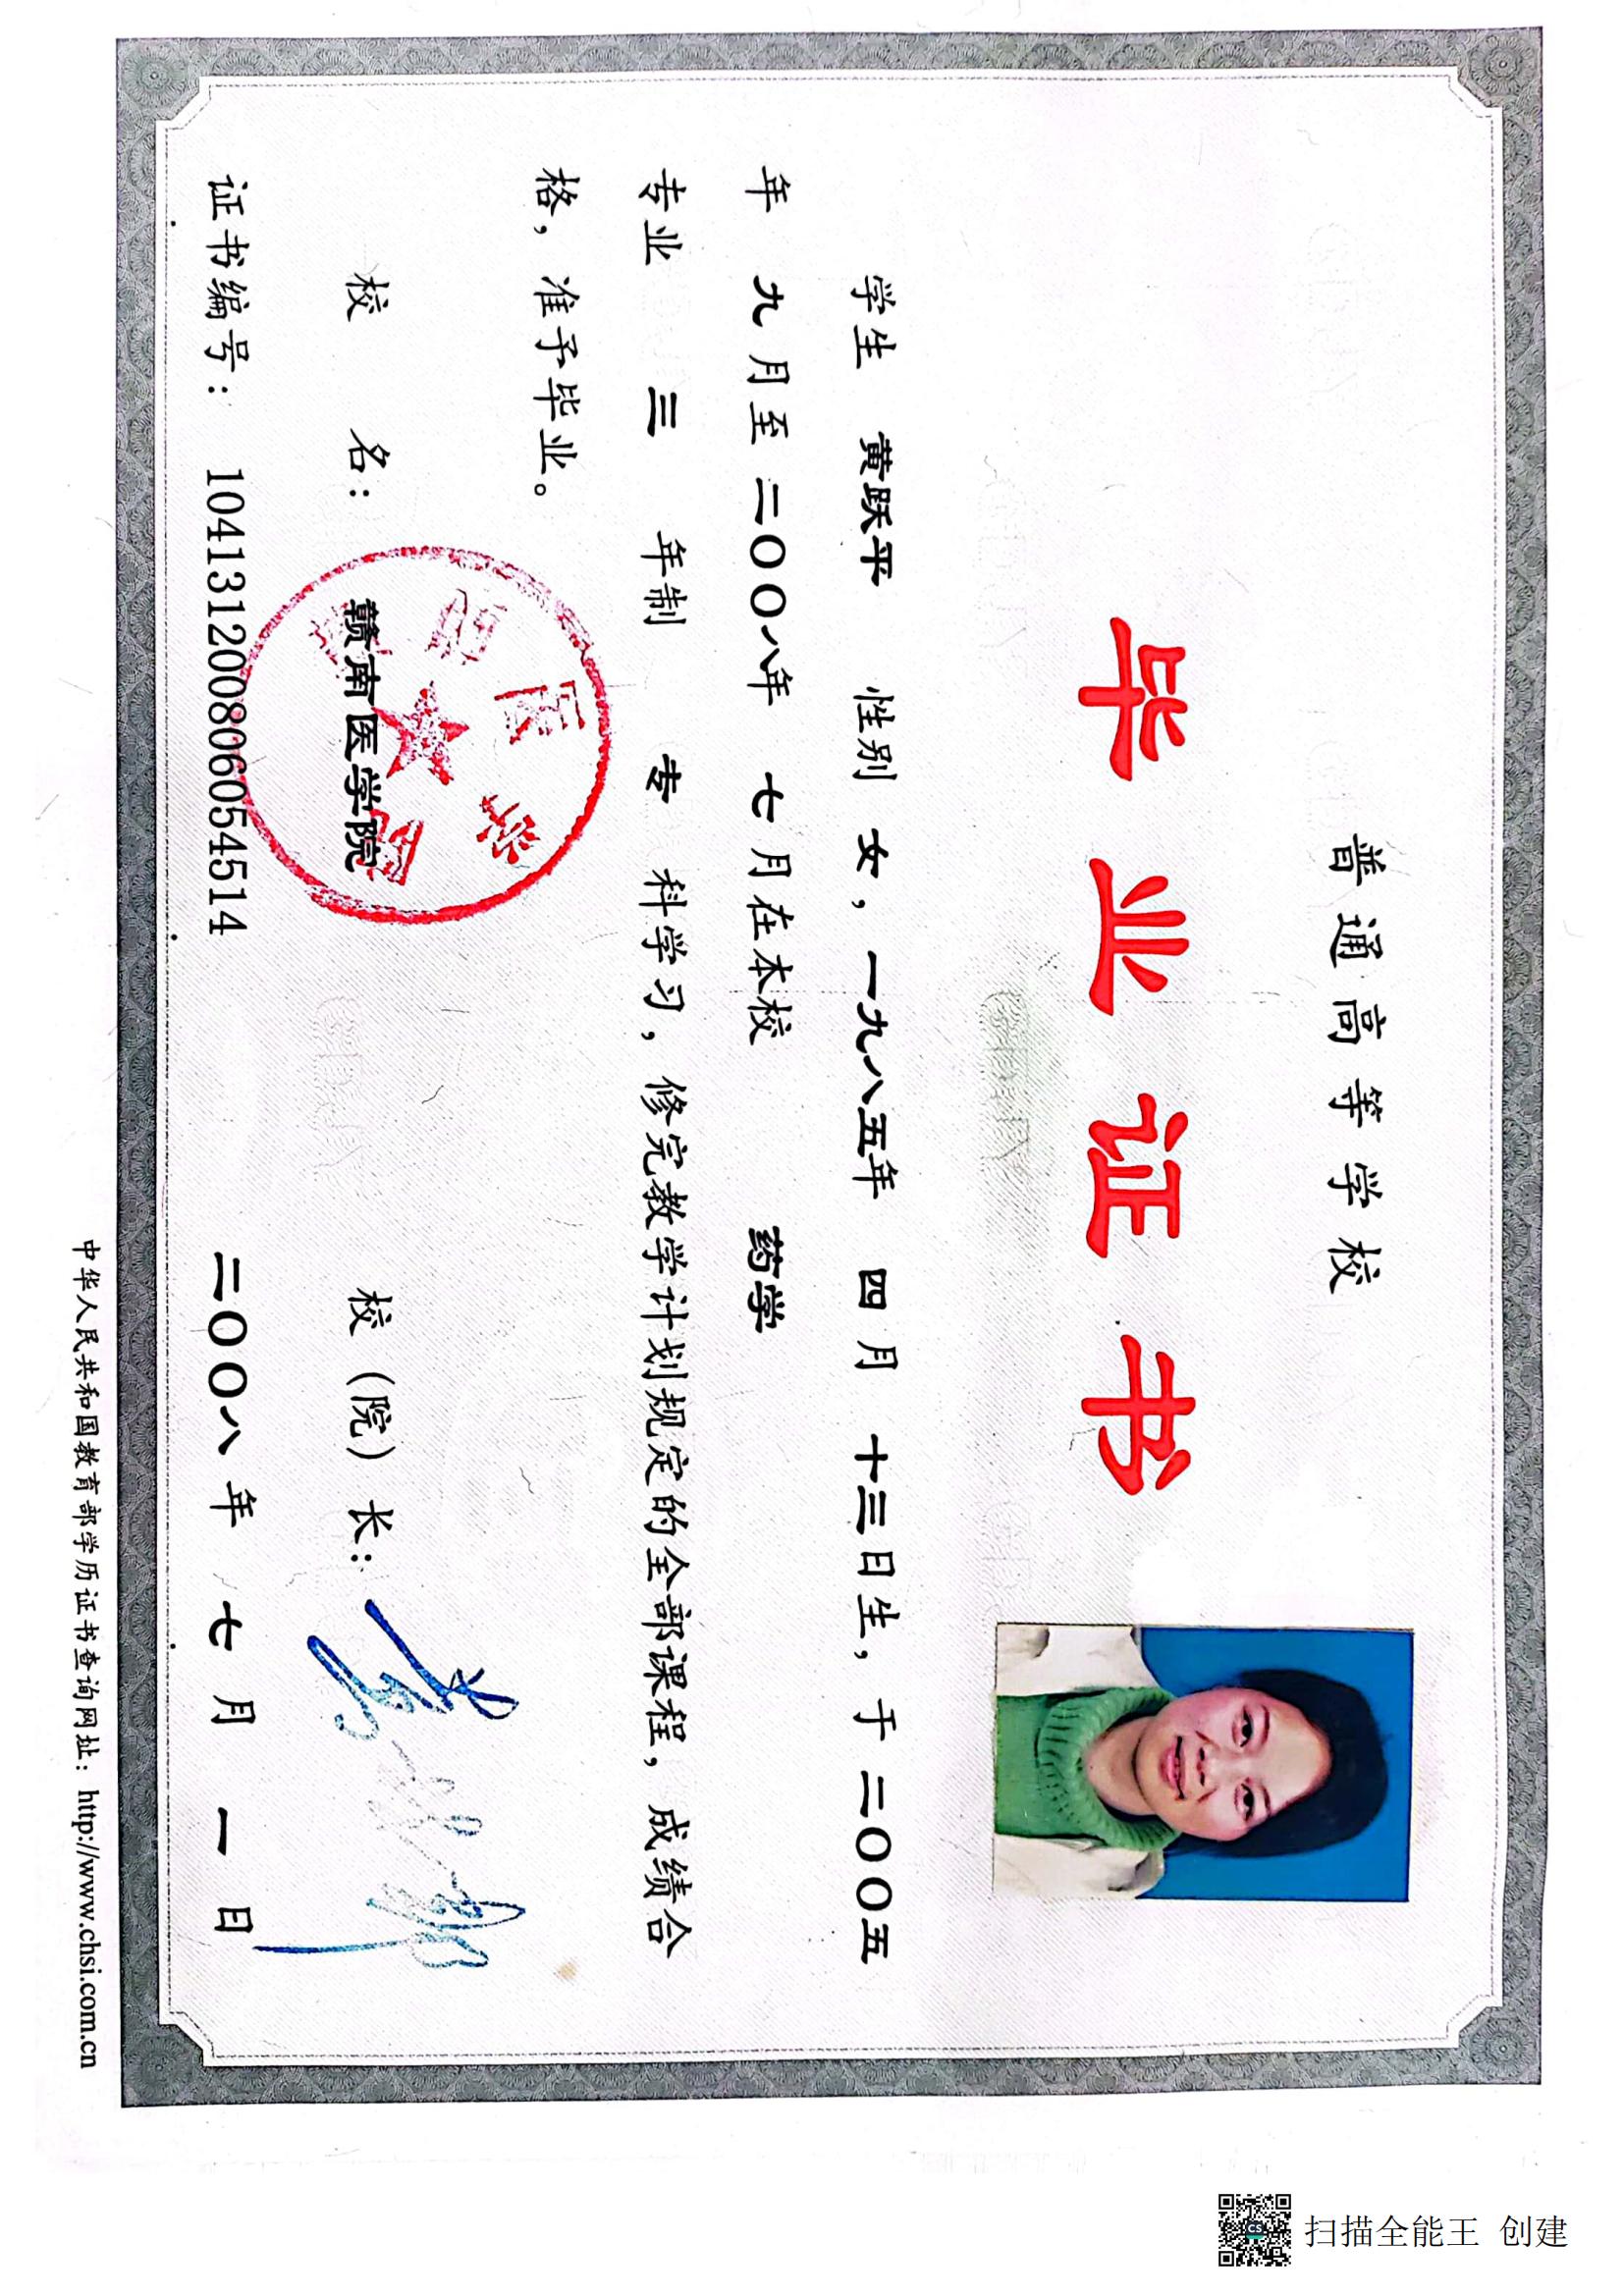 普通高等学校
毕业证书
学生 黄跃平 性别 女，一九八五年 四 月 十三日生，于 二〇〇五
年 九 月至 二〇〇八年 七 月在本校 药学
专业 三 年制 专 科学习，修完教学计划规定的全部课程，成绩合
格，准予毕业。
校 名： 赣南医学院 校（院）长：
证书编号： 104131200806054514 二〇〇八 年 七 月 一 日
中华人民共和国教育部学历证书查询网址：http://www.chsi.com.cn
扫描全能王 创建